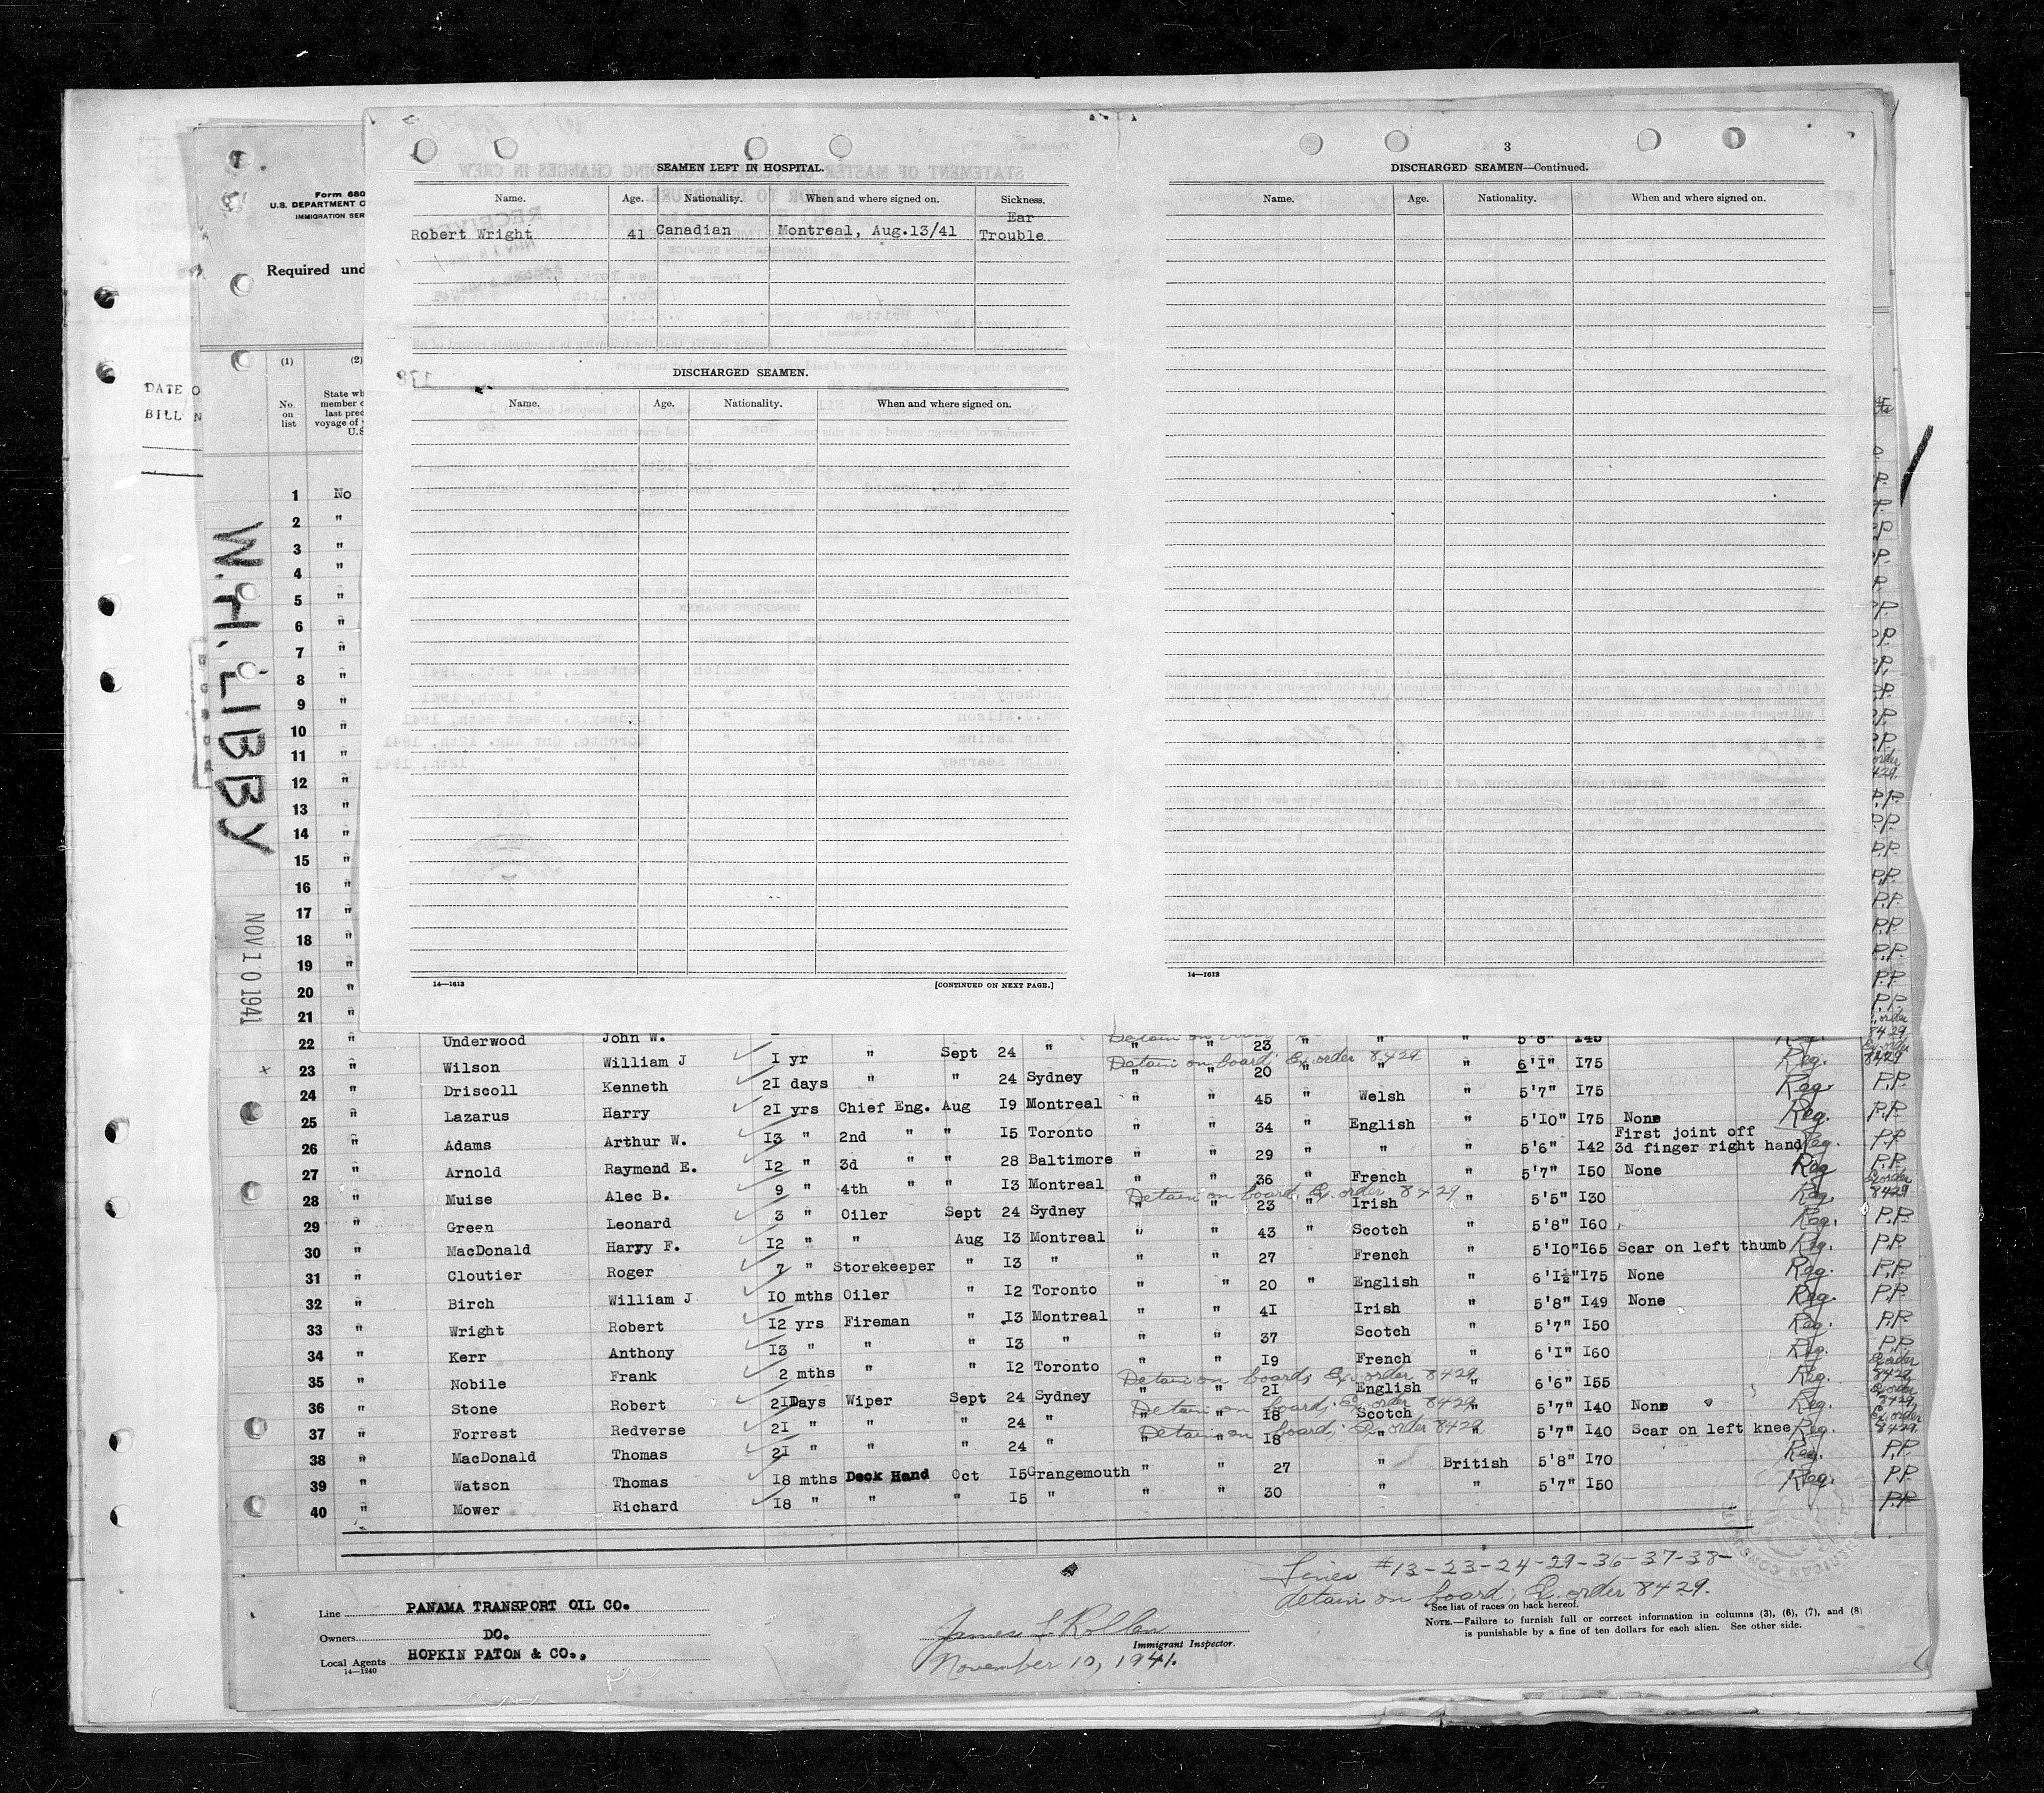 SEAMEN LEFT IN HOSPITAL.
Name. Age. Nationality. When and where signed on. Sickness.
Robert Wright 41 Canadian Montreal, Aug.13/41 Ear Trouble
DISCHARGED SEAMEN.
Name. Age. Nationality. When and where signed on.
14—1613 [CONTINUED ON NEXT PAGE.]
3
DISCHARGED SEAMEN—Continued.
Name. Age. Nationality. When and where signed on.
14—1613
Form 680
U.S. DEPARTMENT O
IMMIGRATION SER
Required und
DATE O
BILL N
(1) (2)
No. on list
State wh
member o
last prec
voyage of
U.S
W.H. LIBBY
NOV 10 1941
1 No
2 "
3 "
4 "
5 "
6 "
7 "
8 "
9 "
10 "
11 "
12 "
13 "
14 "
15 "
16 "
17 "
18 "
19 "
20 "
21 "
22 " Underwood John W. " " 23 " " " 5'8" I45
23 " Wilson William J I yr " Sept 24 " Detain on board; Ex. order 8429 " " 20 " " " 6'I" I75 Reg. Ex. order 8429
24 " Driscoll Kenneth 2I days " " 24 Sydney " " 45 " Welsh " 5'7" I75 Reg. P.P.
25 " Lazarus Harry 2I yrs Chief Eng. Aug I9 Montreal " " 34 " English " 5'I0" I75 None Reg. P.P.
26 " Adams Arthur W. I3 " 2nd " " I5 Toronto " " 29 " " " 5'6" I42 First joint off 3d finger right hand Reg. P.P.
27 " Arnold Raymond E. I2 " 3d " " 28 Baltimore " " 36 " French " 5'7" I50 None Reg P.P.
28 " Muise Alec B. 9 " 4th " " I3 Montreal Detain on board; Ex. order 8429 " " 23 " Irish " 5'5" I30 Reg. Ex. order 8429
29 " Green Leonard 3 " Oiler Sept 24 Sydney " " 43 " Scotch " 5'8" I60 Reg. P.P.
30 " MacDonald Harry F. I2 " " Aug I3 Montreal " " 27 French " 5'I0" I65 Scar on left thumb Reg. P.P.
31 " Cloutier Roger 7 " Storekeeper " I3 " " " 20 " English " 6'I½" I75 None Reg. P.P.
32 " Birch William J I0 mths Oiler " I2 Toronto " " 4I Irish " 5'8" I49 None Reg. P.P.
33 " Wright Robert I2 yrs Fireman " I3 Montreal " " 37 Scotch " 5'7" I50 Reg. P.P.
34 " Kerr Anthony I3 " " " I3 " " " I9 French " 6'I" I60 Reg. P.P.
35 " Nobile Frank 2 mths " " I2 Toronto Detain on board; Ex. order 8429 " " 2I English " 6'6" I55 Reg. Ex. order 8429
36 " Stone Robert 2I Days Wiper Sept 24 Sydney Detain on board; Ex. order 8429 " " I8 Scotch " 5'7" I40 None Reg. Ex. order 8429
37 " Forrest Redverse 2I " " " 24 " Detain on board; Ex. order 8429 " " I8 " " 5'7" I40 Scar on left knee Reg. Ex. order 8429
38 " MacDonald Thomas 2I " " " 24 " " " 27 " British 5'8" I70 Reg. P.P.
39 " Watson Thomas I8 mths Deck Hand Oct I5 Grangemouth " " 30 " " 5'7" I50 Reg. P.P.
40 " Mower Richard I8 " " " I5 " P.P.
Lines #13-23-24-29-36-37-38-
detain on board; Ex. order 8429.
Line PANAMA TRANSPORT OIL CO.
Owners DO.
Local Agents HOPKIN PATON & CO.,
14—1240
James L. Rollan
Immigrant Inspector.
November 10, 1941.
* See list of races on back hereof.
NOTE.—Failure to furnish full or correct information in columns (3), (6), (7), and (8)
is punishable by a fine of ten dollars for each alien. See other side.